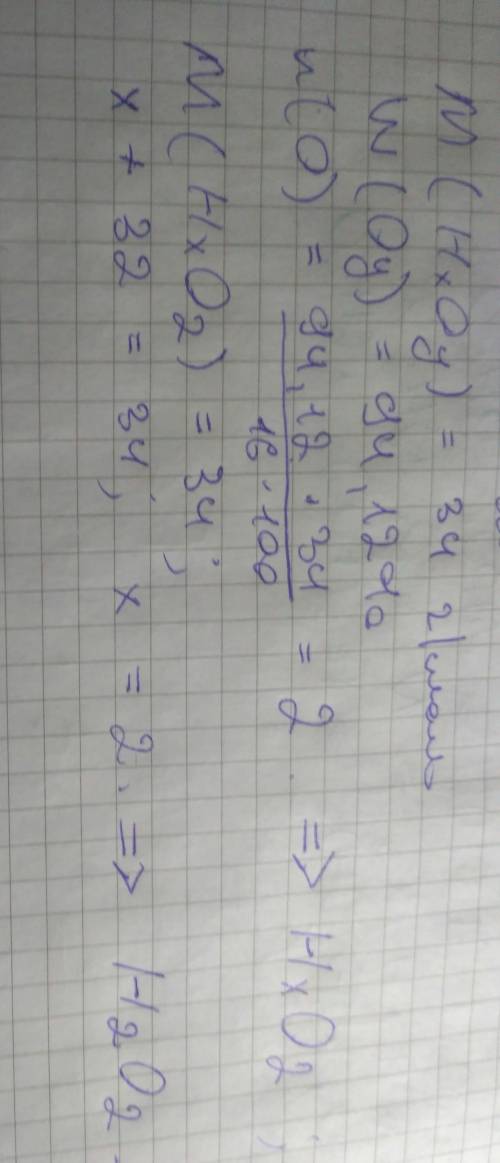 M(HxOy) = 34 г/моль
W(Oy) = 94,12%
n(O) = 94,12 · 34 / 16 · 100 = 2 ⇒ HxO2;
M(HxO2) = 34;
x + 32 = 34; x = 2. ⇒ H2O2